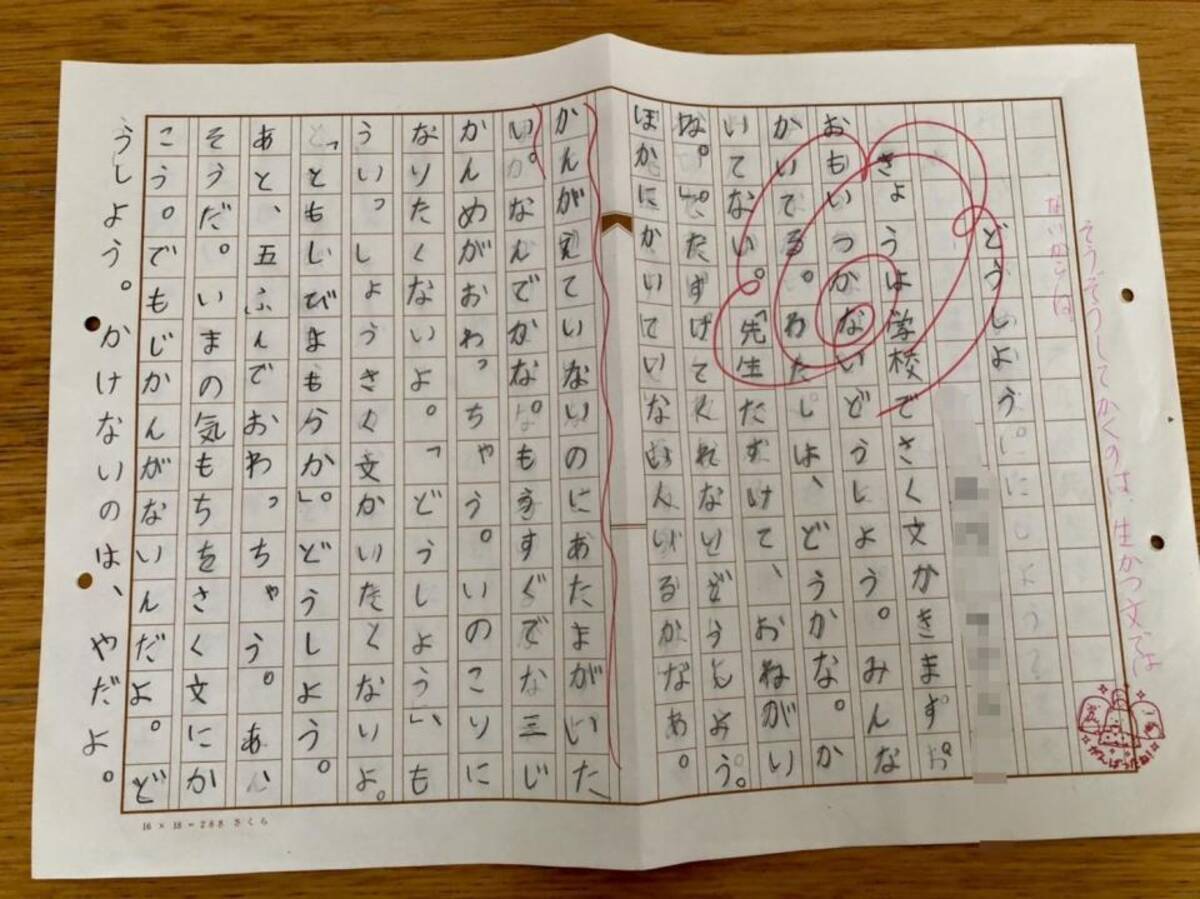 そうぞうしてかくのは、生かつ文では
どうしよう
きょうは学校でさく文かきます。
おもいつかないどうしよう。みんな
かいてる。わたしは、どうかな。か
いてない。「先生たすけて、おねがい
ね。」たすけてくれないどうしよう。
ほかにかいていない人いるかなあ。
かんがえていないのにあたまがいた
い。なんでかな。もうすぐで三じ
かんめがおわっちゃう。いのこりに
なりたくないよ。「どうしよう」、も
ういっしょうさく文かいたくないよ。
「ともしびよもうか」。どうしよう。
あと、五ふんでおわっちゃう。あ、
そうだ。いまの気もちをさく文にか
こう。でもじかんがないんだよ。ど
うしよう。かけないのは、やだよ。
がんばったね!
16 × 18 = 288 さくら